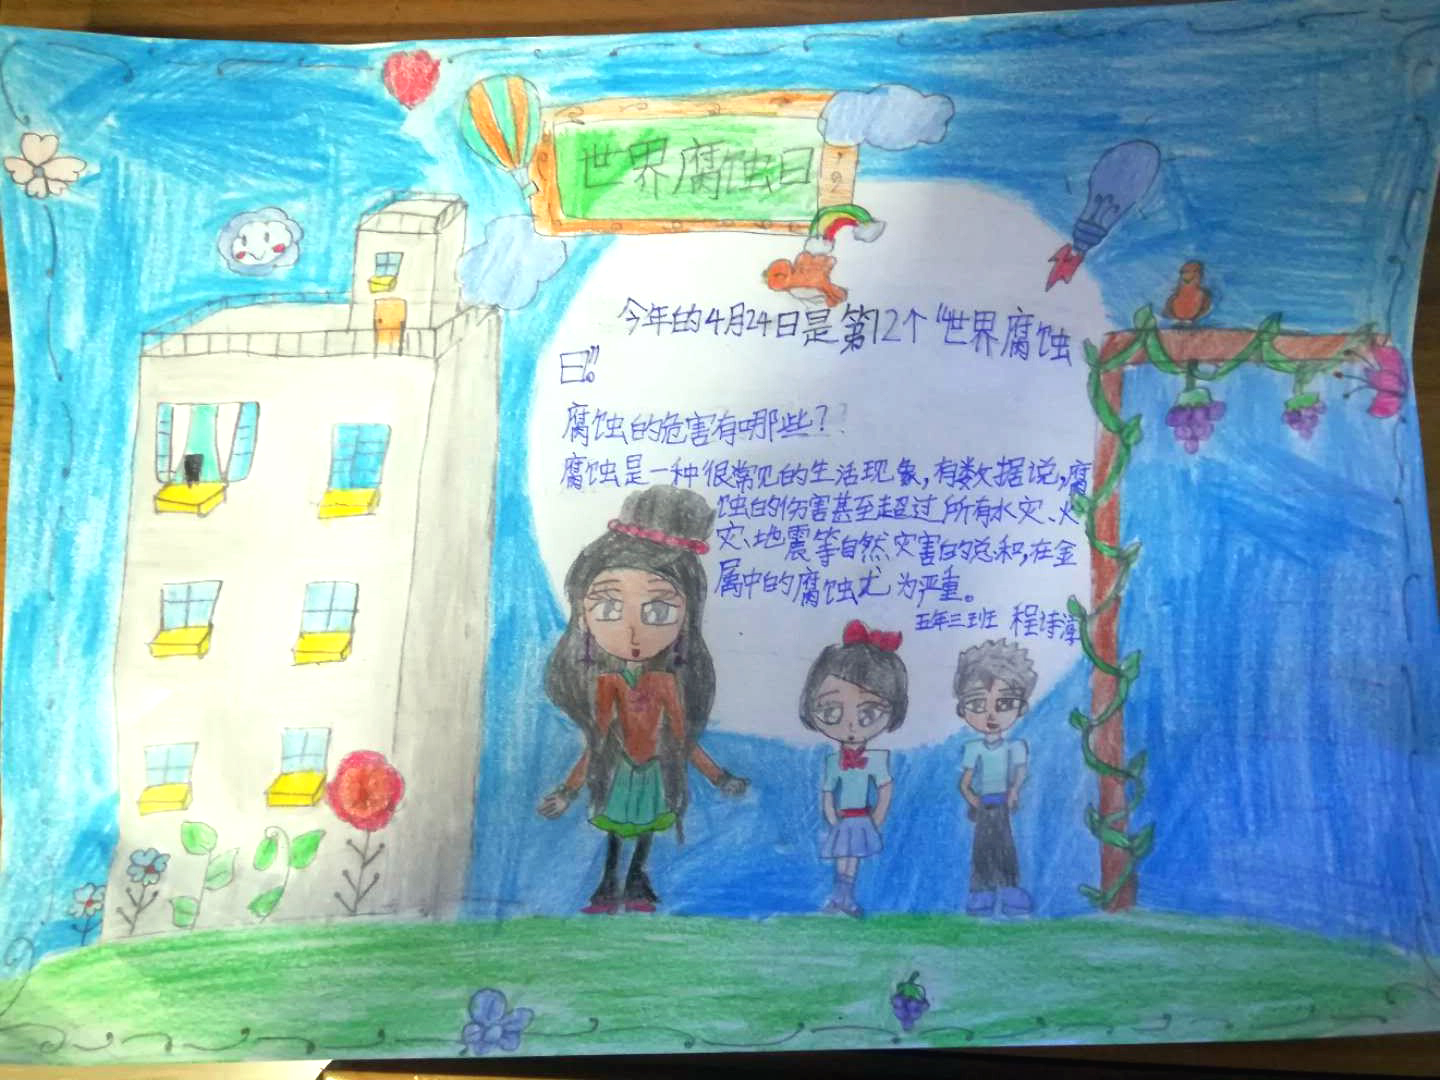 世界腐蚀日
今年的4月24日是第12个“世界腐蚀
日”。
腐蚀的危害有哪些？
腐蚀是一种很常见的生活现象，有数据说，腐
蚀的伤害甚至超过所有水灾、火
灾、地震等自然灾害的总和，在金
属中的腐蚀尤为严重。
五年三班 程诗